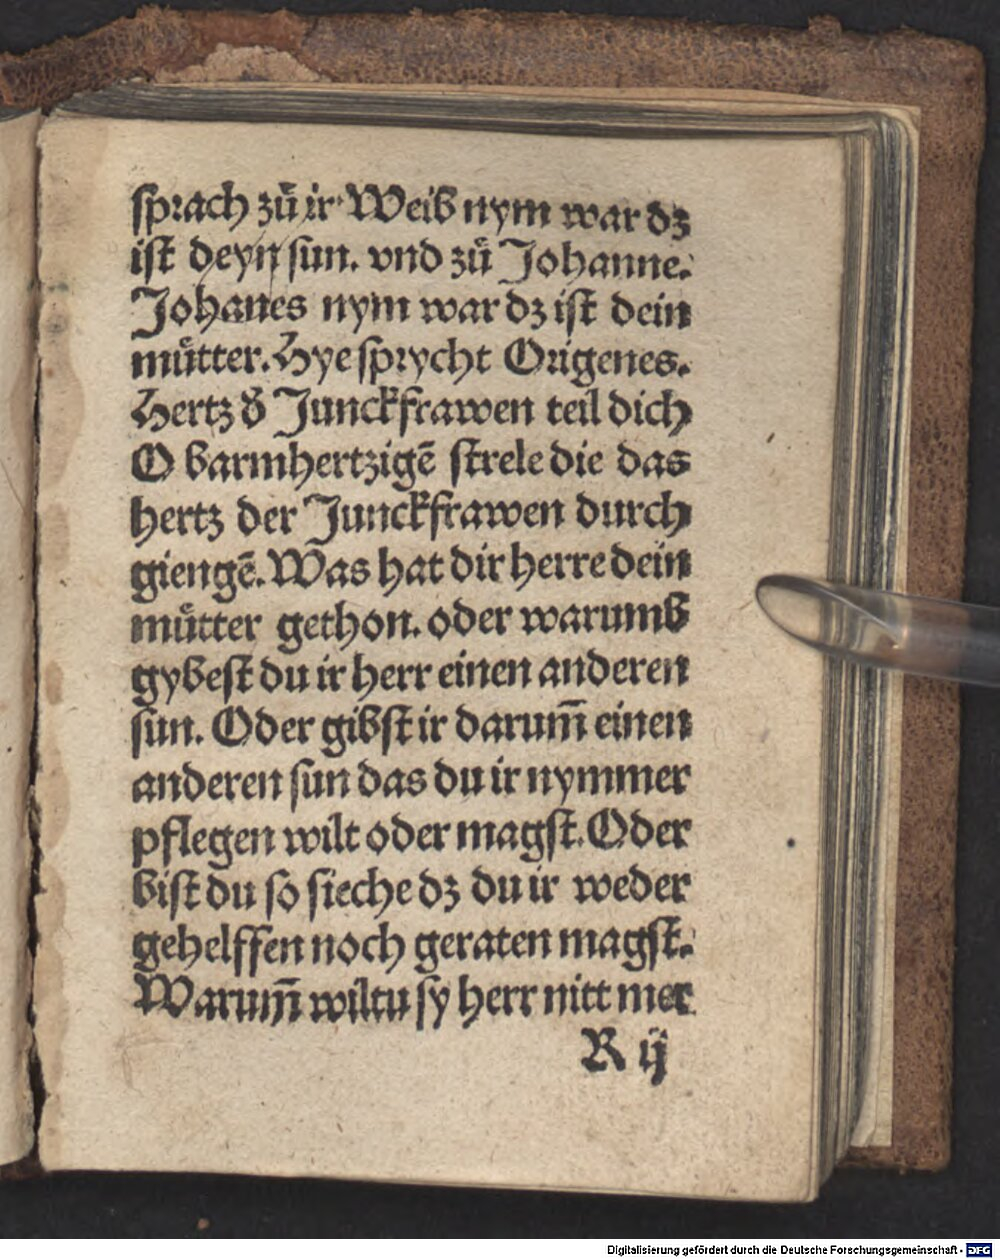 sprach zů ir Weib nym war dz
ist deyn sun. vnd zů Johanne.
Johanes nym war dz ist dein
můtter. Hye sprycht Origenes.
Hertzď Junckfrawen teil dich
O barmhertzigē strele die das
hertz der Junckfrawen durch
giengē. Was hat dir herre dein
můtter gethon. oder warumb
gybest du ir herr einen anderen
sun. Oder gibst ir darum̄ einen
anderen sun das du ir nymmer
pflegen wilt oder magst. Oder
bist du so sieche dz du ir weder
gehelffen noch geraten magst.
Warum̄ wiltu sy herr nitt mer
R ij
Digitalisierung gefördert durch die Deutsche Forschungsgemeinschaft - DFG